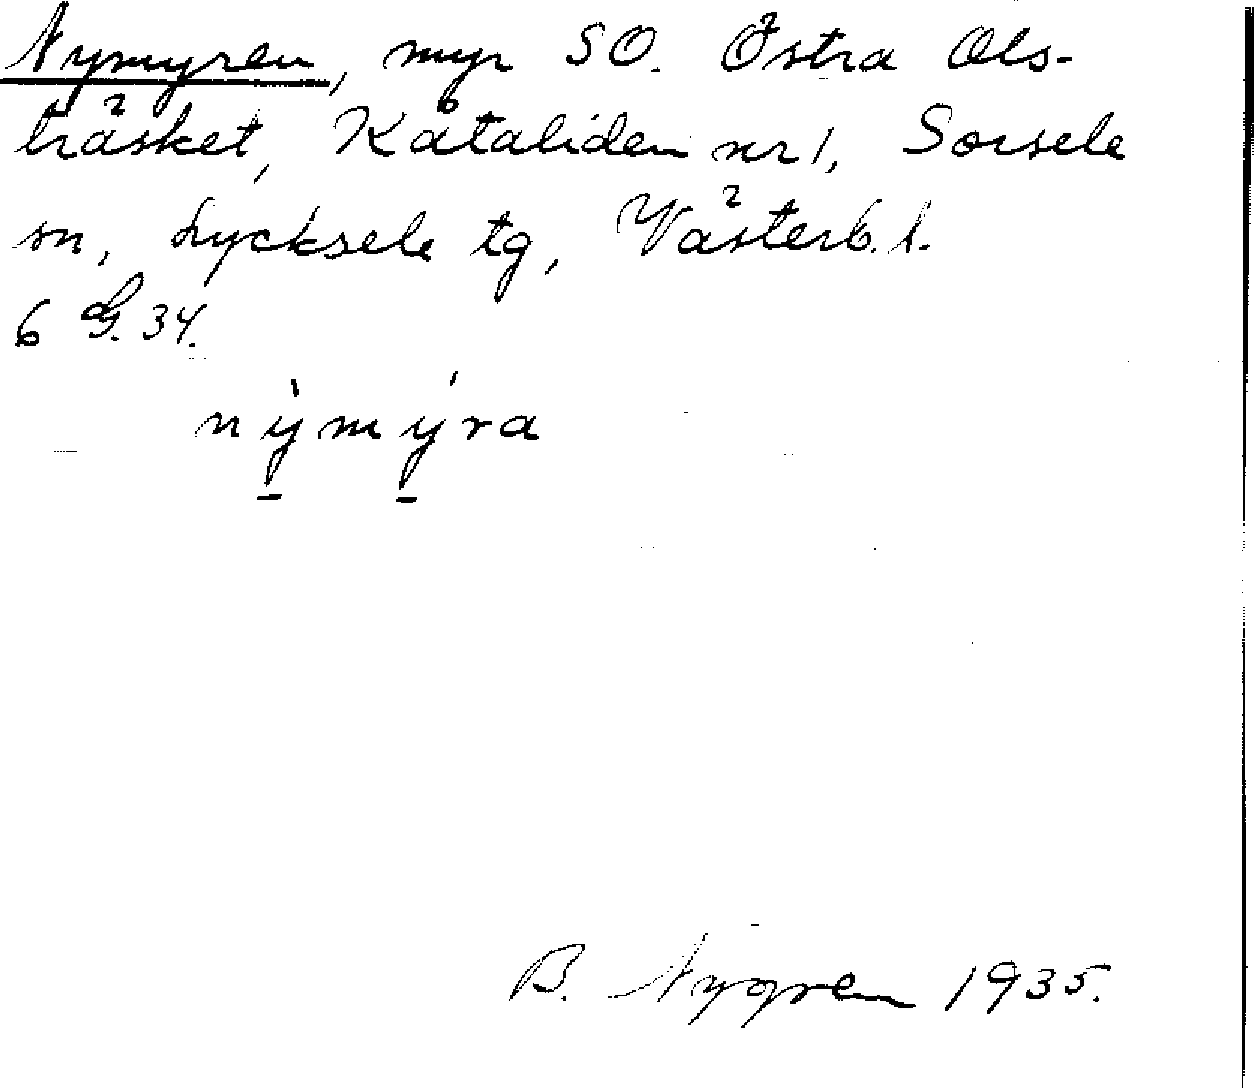 Nymyren, myr SO. Östra Ols-
träsket, Kåtaliden nr 1, Sorsele
sn, Lycksele tg, Västerb. l.
6 G. 34.
nỳmýra
B. Nygren 1935.